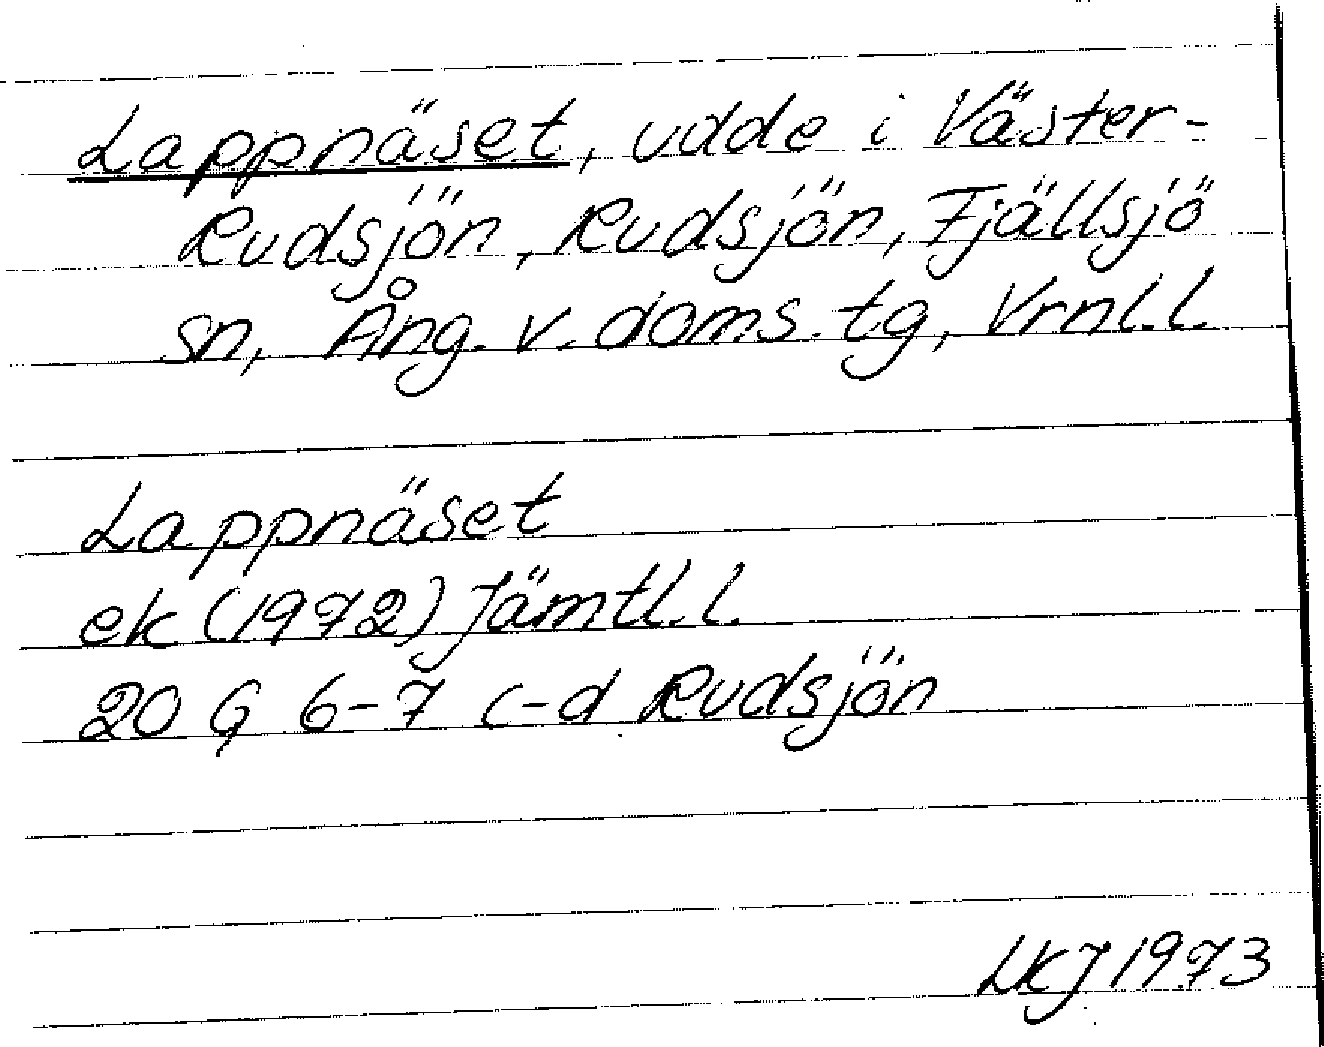 Lappnäset, udde i Väster-
Rudsjön, Rudsjön, Fjällsjö
sn, Ång. v. doms. tg, Vrnl.l.
Lappnäset
ek (1972) Jämtl.l.
20 G 6-7 c-d Rudsjön
LKJ 1973